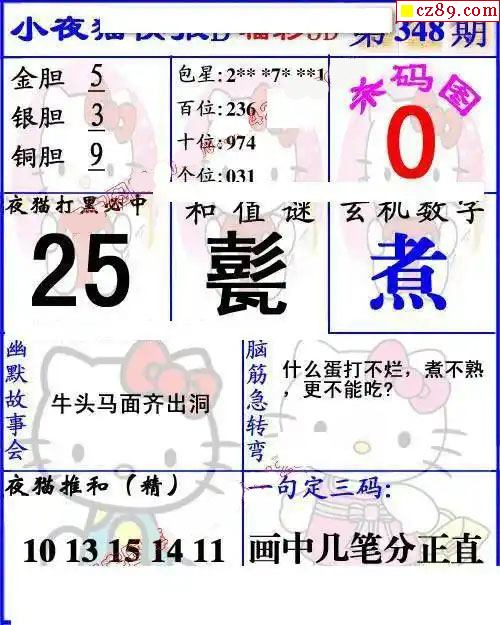 cz89.com
小夜猫快报D 福彩3D 第348期
金胆 5
银胆 3
铜胆 9
包星:2** *7* **1
百位:236
十位:974
个位:031
杀码图
0
夜猫打黑必中
25
和值谜
甏
玄机数字
煮
幽默故事会
牛头马面齐出洞
脑筋急转弯
什么蛋打不烂，煮不熟
，更不能吃？
夜猫推和（精）
10 13 15 14 11
一句定三码:
画中几笔分正直